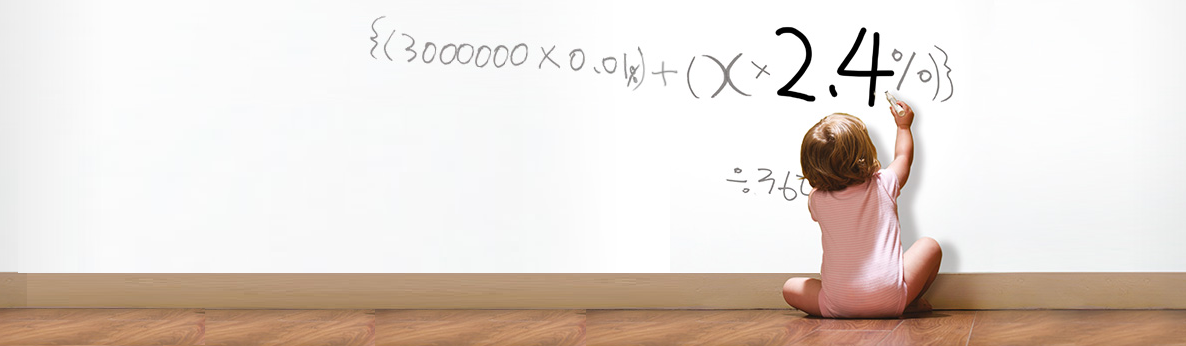 {(3000000×0.01%)+()(×2.4%)}
÷365